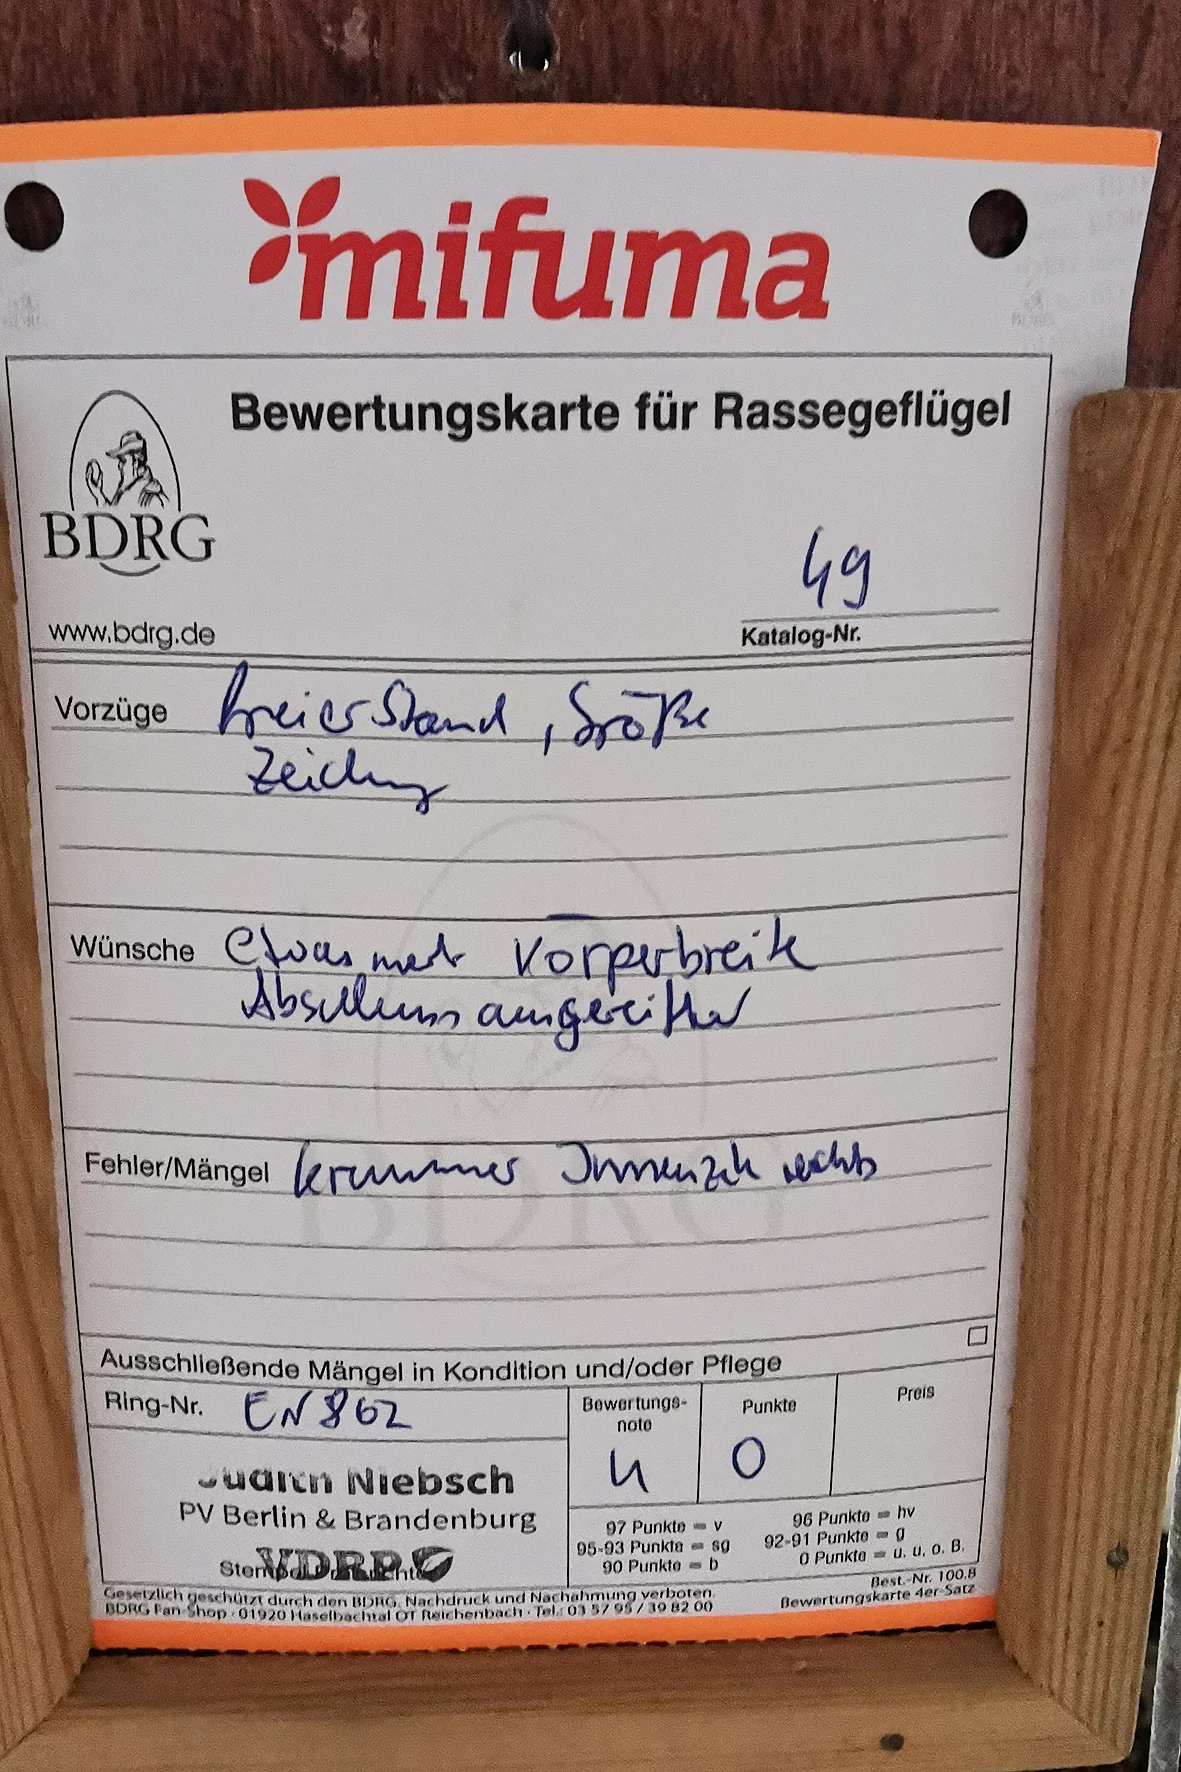 mifuma
Bewertungskarte für Rassegeflügel
BDRG
www.bdrg.de
49
Katalog-Nr.
Vorzüge freier Stand, Größe
Zeichnung
Wünsche etwas mehr Körperbreite
Abschluss ausgereifter
Fehler/Mängel krummer Innenzeh rechts
BDRG
Ausschließende Mängel in Kondition und/oder Pflege
Ring-Nr. EN 862
Bewertungs-
note
Punkte
Preis
u
0
Judith Niebsch
PV Berlin & Brandenburg
VDRP
97 Punkte = v
96 Punkte = hv
95-93 Punkte = sg
92-91 Punkte = g
90 Punkte = b
0 Punkte = u. u, o. B.
Gesetzlich geschützt durch den BDRG. Nachdruck und Nachahmung verboten.
Best.-Nr. 100.8
BDRG Fan-Shop · 01920 Haselbachtal OT Reichenbach · Tel.: 03 57 95 / 39 82 00
Bewertungskarte 4er-Satz